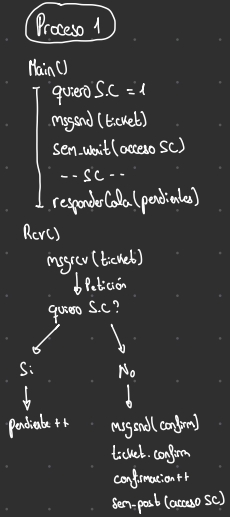 Proceso 1
Main()
quiero S.C = 1
msgsnd (ticket)
sem_wait (acceso SC)
-- SC --
responderCola (pendientes)
Rcv()
msgrcv (ticket)
Petición
quiero S.C?
Si
No
pendiente ++
msgsnd( confirm)
ticket. confirm
confirmacion ++
sem_post (acceso SC)